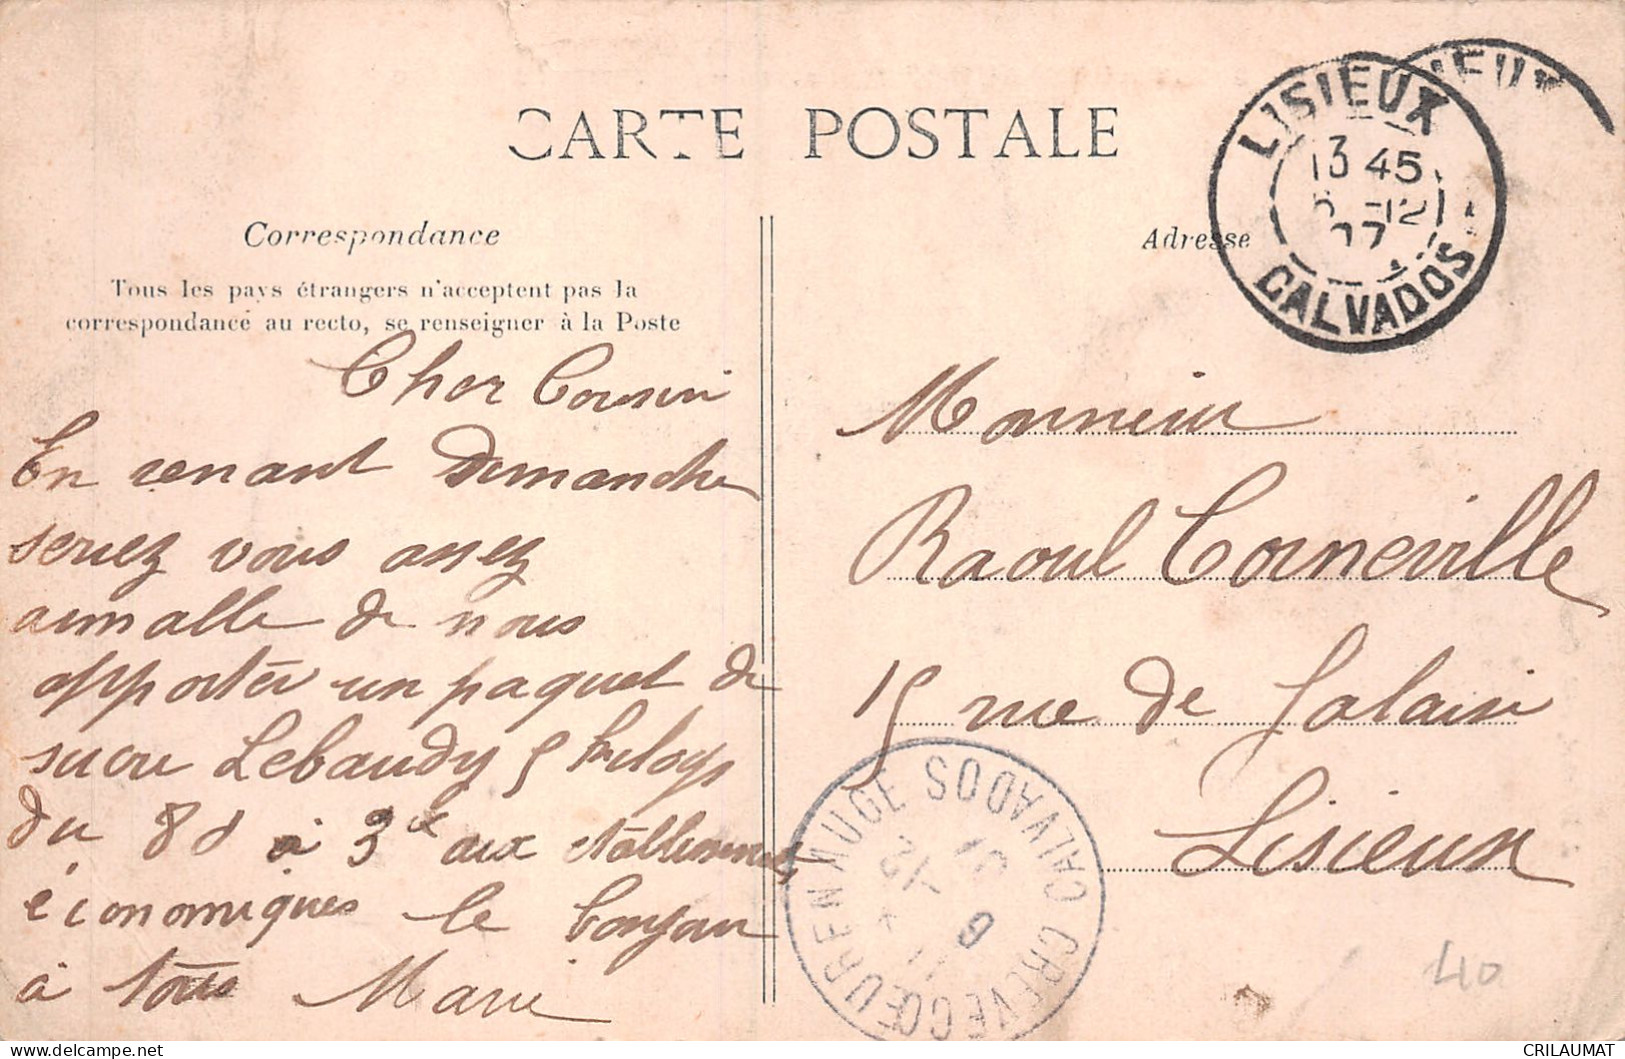 CARTE POSTALE
Correspondance
Tous les pays étrangers n'acceptent pas la
correspondance au recto, se renseigner à la Poste
Cher Cousin
En venant Dimanche
seriez vous assez
aimable de nous
apporter un paquet de
sucre Lebaudy 5 kilogs
du 8d à 3 aux établissements
économiques le bonjour
à tous Marie
Adresse
LISIEUX
13 45
-12
CALVADOS
Monsieur
Raoul Corneville
15 rue de
Lisieux
CREVECŒUR EN AUGE CALVADOS
40
CRILAUMAT